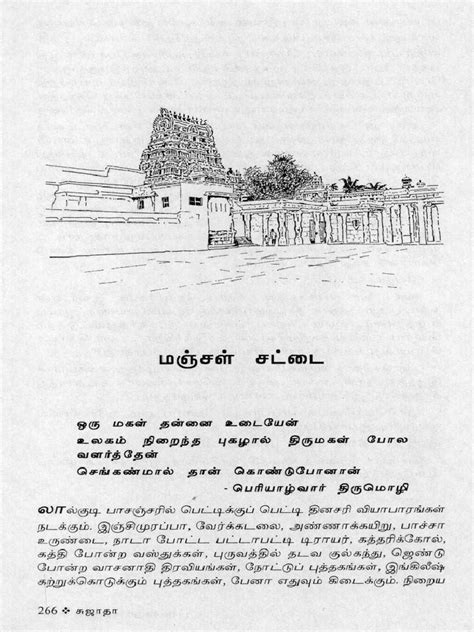 மஞ்சள் சட்டை
ஒரு மகள் தன்னை உடையேன்
உலகம் நிறைந்த புகழால் திருமகள் போல
வளர்த்தேன்
செங்கண்மால் தான் கொண்டுபோனான்
- பெரியாழ்வார் திருமொழி
லால்குடி பாசஞ்சரில் பெட்டிக்குப் பெட்டி தினசரி வியாபாரங்கள்
நடக்கும். இஞ்சிமுரப்பா, வேர்க்கடலை, அண்ணாக்கயிறு, பாச்சா
உருண்டை, நாடா போட்ட பட்டாபட்டி டிராயர், கத்தரிக்கோல்,
கத்தி போன்ற வஸ்துக்கள், புருவத்தில் தடவ குல்கந்து, ஜெண்டு
போன்ற வாசனாதி திரவியங்கள், நோட்டுப் புத்தகங்கள், இங்கிலீஷ்
கற்றுக்கொடுக்கும் புத்தகங்கள், பேனா எதுவும் கிடைக்கும். நிறைய
266 ❖ சுஜாதா